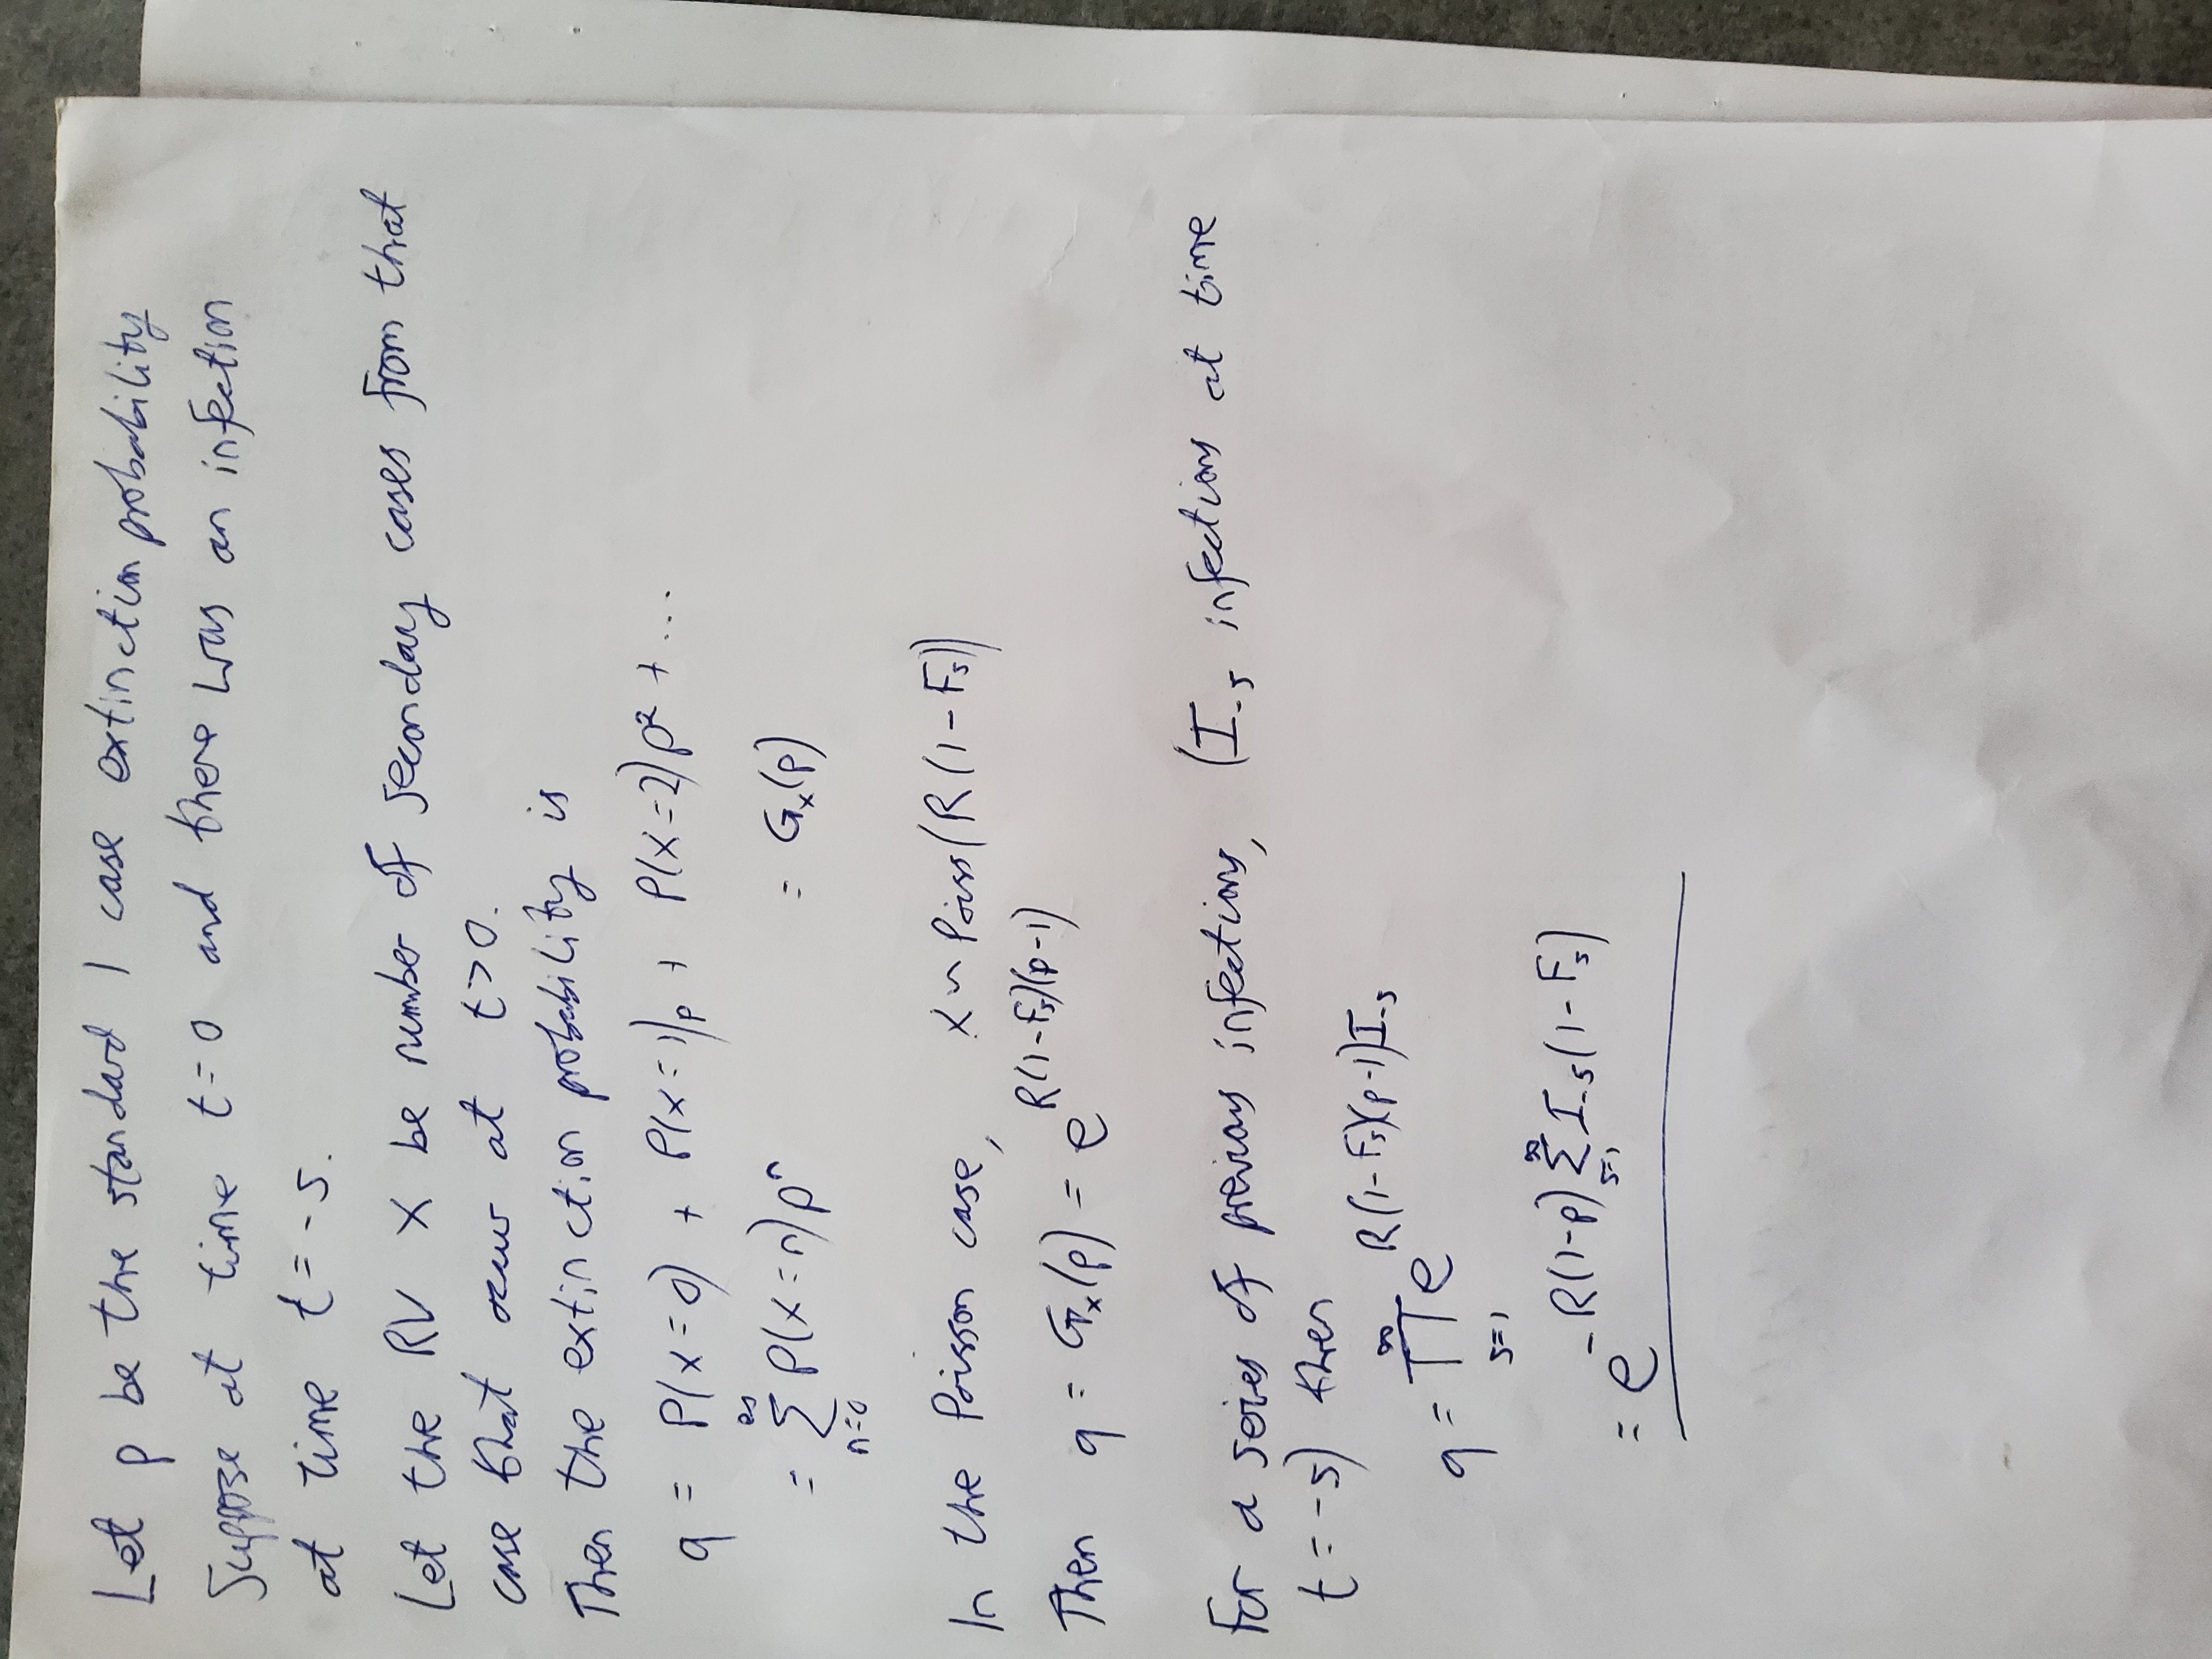 Let p be the standard 1 case extinction probability
Suppose at time t=0 and there was an infection
at time t=-s.
Let the RV X be number of secondary cases from that
case that occur at t>0.
Then the extinction probability is
q = P(X=0) + P(X=1)p + P(X=2)p² + ...
= ∑_{n=0}^{∞} P(X=n)pⁿ = G_X(p)
In the Poisson case, X ~ Poiss(R(1-F_s))
Then q = G_X(p) = e^{R(1-F_s)(p-1)}
For a series of previous infections, (I_{-s} infections at time
t=-s) then
q = ∏_{s=1}^{∞} e^{R(1-F_s)(p-1)I_{-s}}
= e^{-R(1-p) ∑_{s=1}^{∞} I_{-s}(1-F_s)}